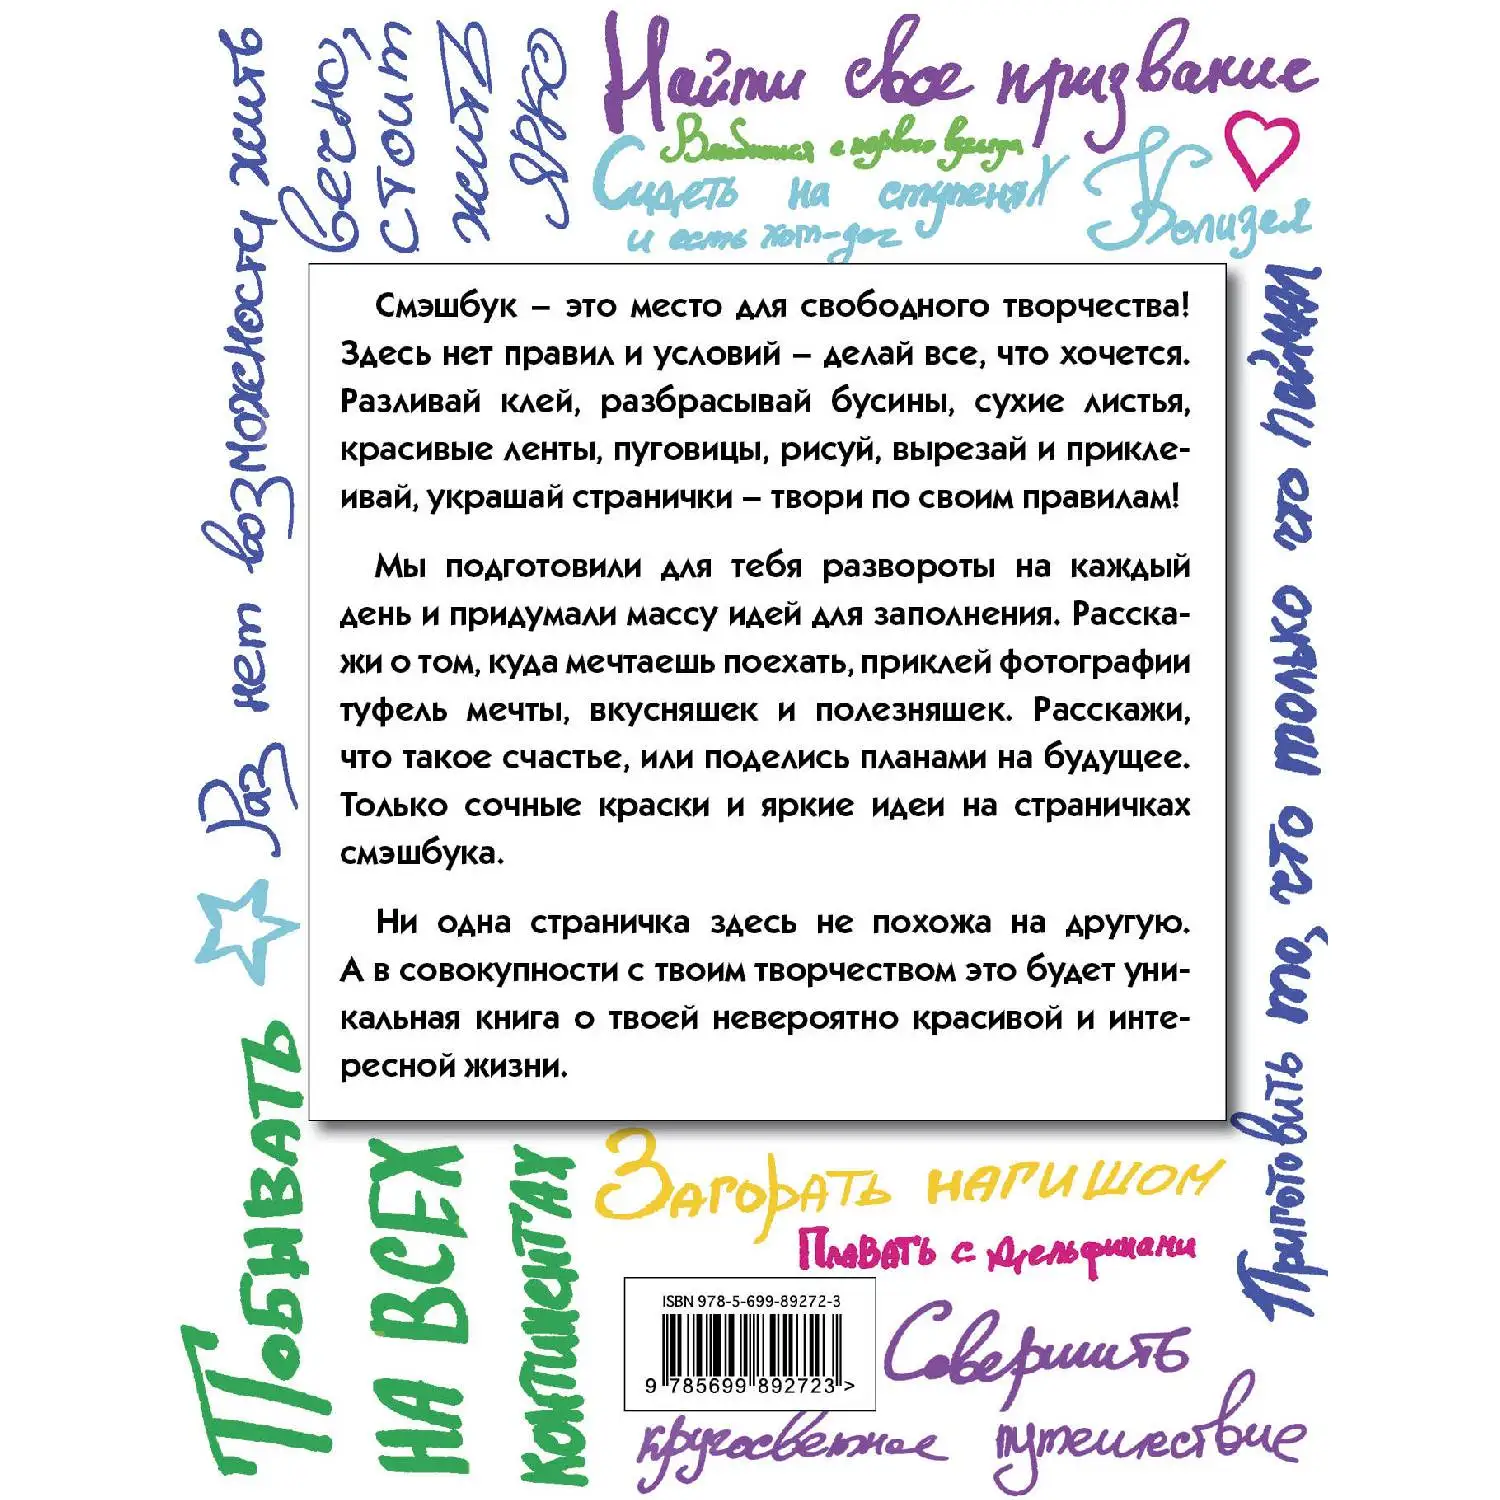 Найти свое призвание
Влюбиться с первого взгляда
Сидеть на ступенях
Колизея
и есть хот-дог
Раз нет возможности жить
вечно,
стоит
жить
ярко
Смэшбук – это место для свободного творчества!
Здесь нет правил и условий – делай все, что хочется.
Разливай клей, разбрасывай бусины, сухие листья,
красивые ленты, пуговицы, рисуй, вырезай и прикле-
ивай, украшай странички – твори по своим правилам!
Мы подготовили для тебя развороты на каждый
день и придумали массу идей для заполнения. Расска-
жи о том, куда мечтаешь поехать, приклей фотографии
туфель мечты, вкусняшек и полезняшек. Расскажи,
что такое счастье, или поделись планами на будущее.
Только сочные краски и яркие идеи на страничках
смэшбука.
Ни одна страничка здесь не похожа на другую.
А в совокупности с твоим творчеством это будет уни-
кальная книга о твоей невероятно красивой и инте-
ресной жизни.
Приготовить то, что только что поймал
Побывать
на всех
континентах
Загорать нагишом
Плавать с дельфинами
ISBN 978-5-699-89272-3
9 785699 892723 >
Совершить
кругосветное путешествие